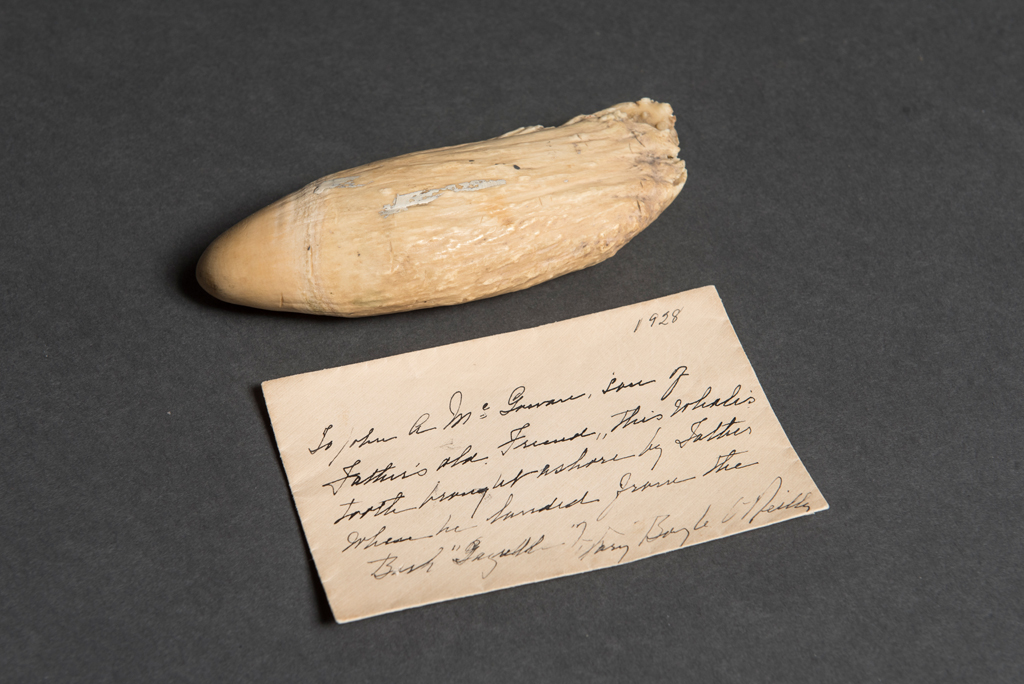 1928
To John A McGowan, son of
Father's old Friend, this Whale's
tooth brought ashore by Father
when he landed from the
Bark "Gazelle" Mary Boyle O'Reilly